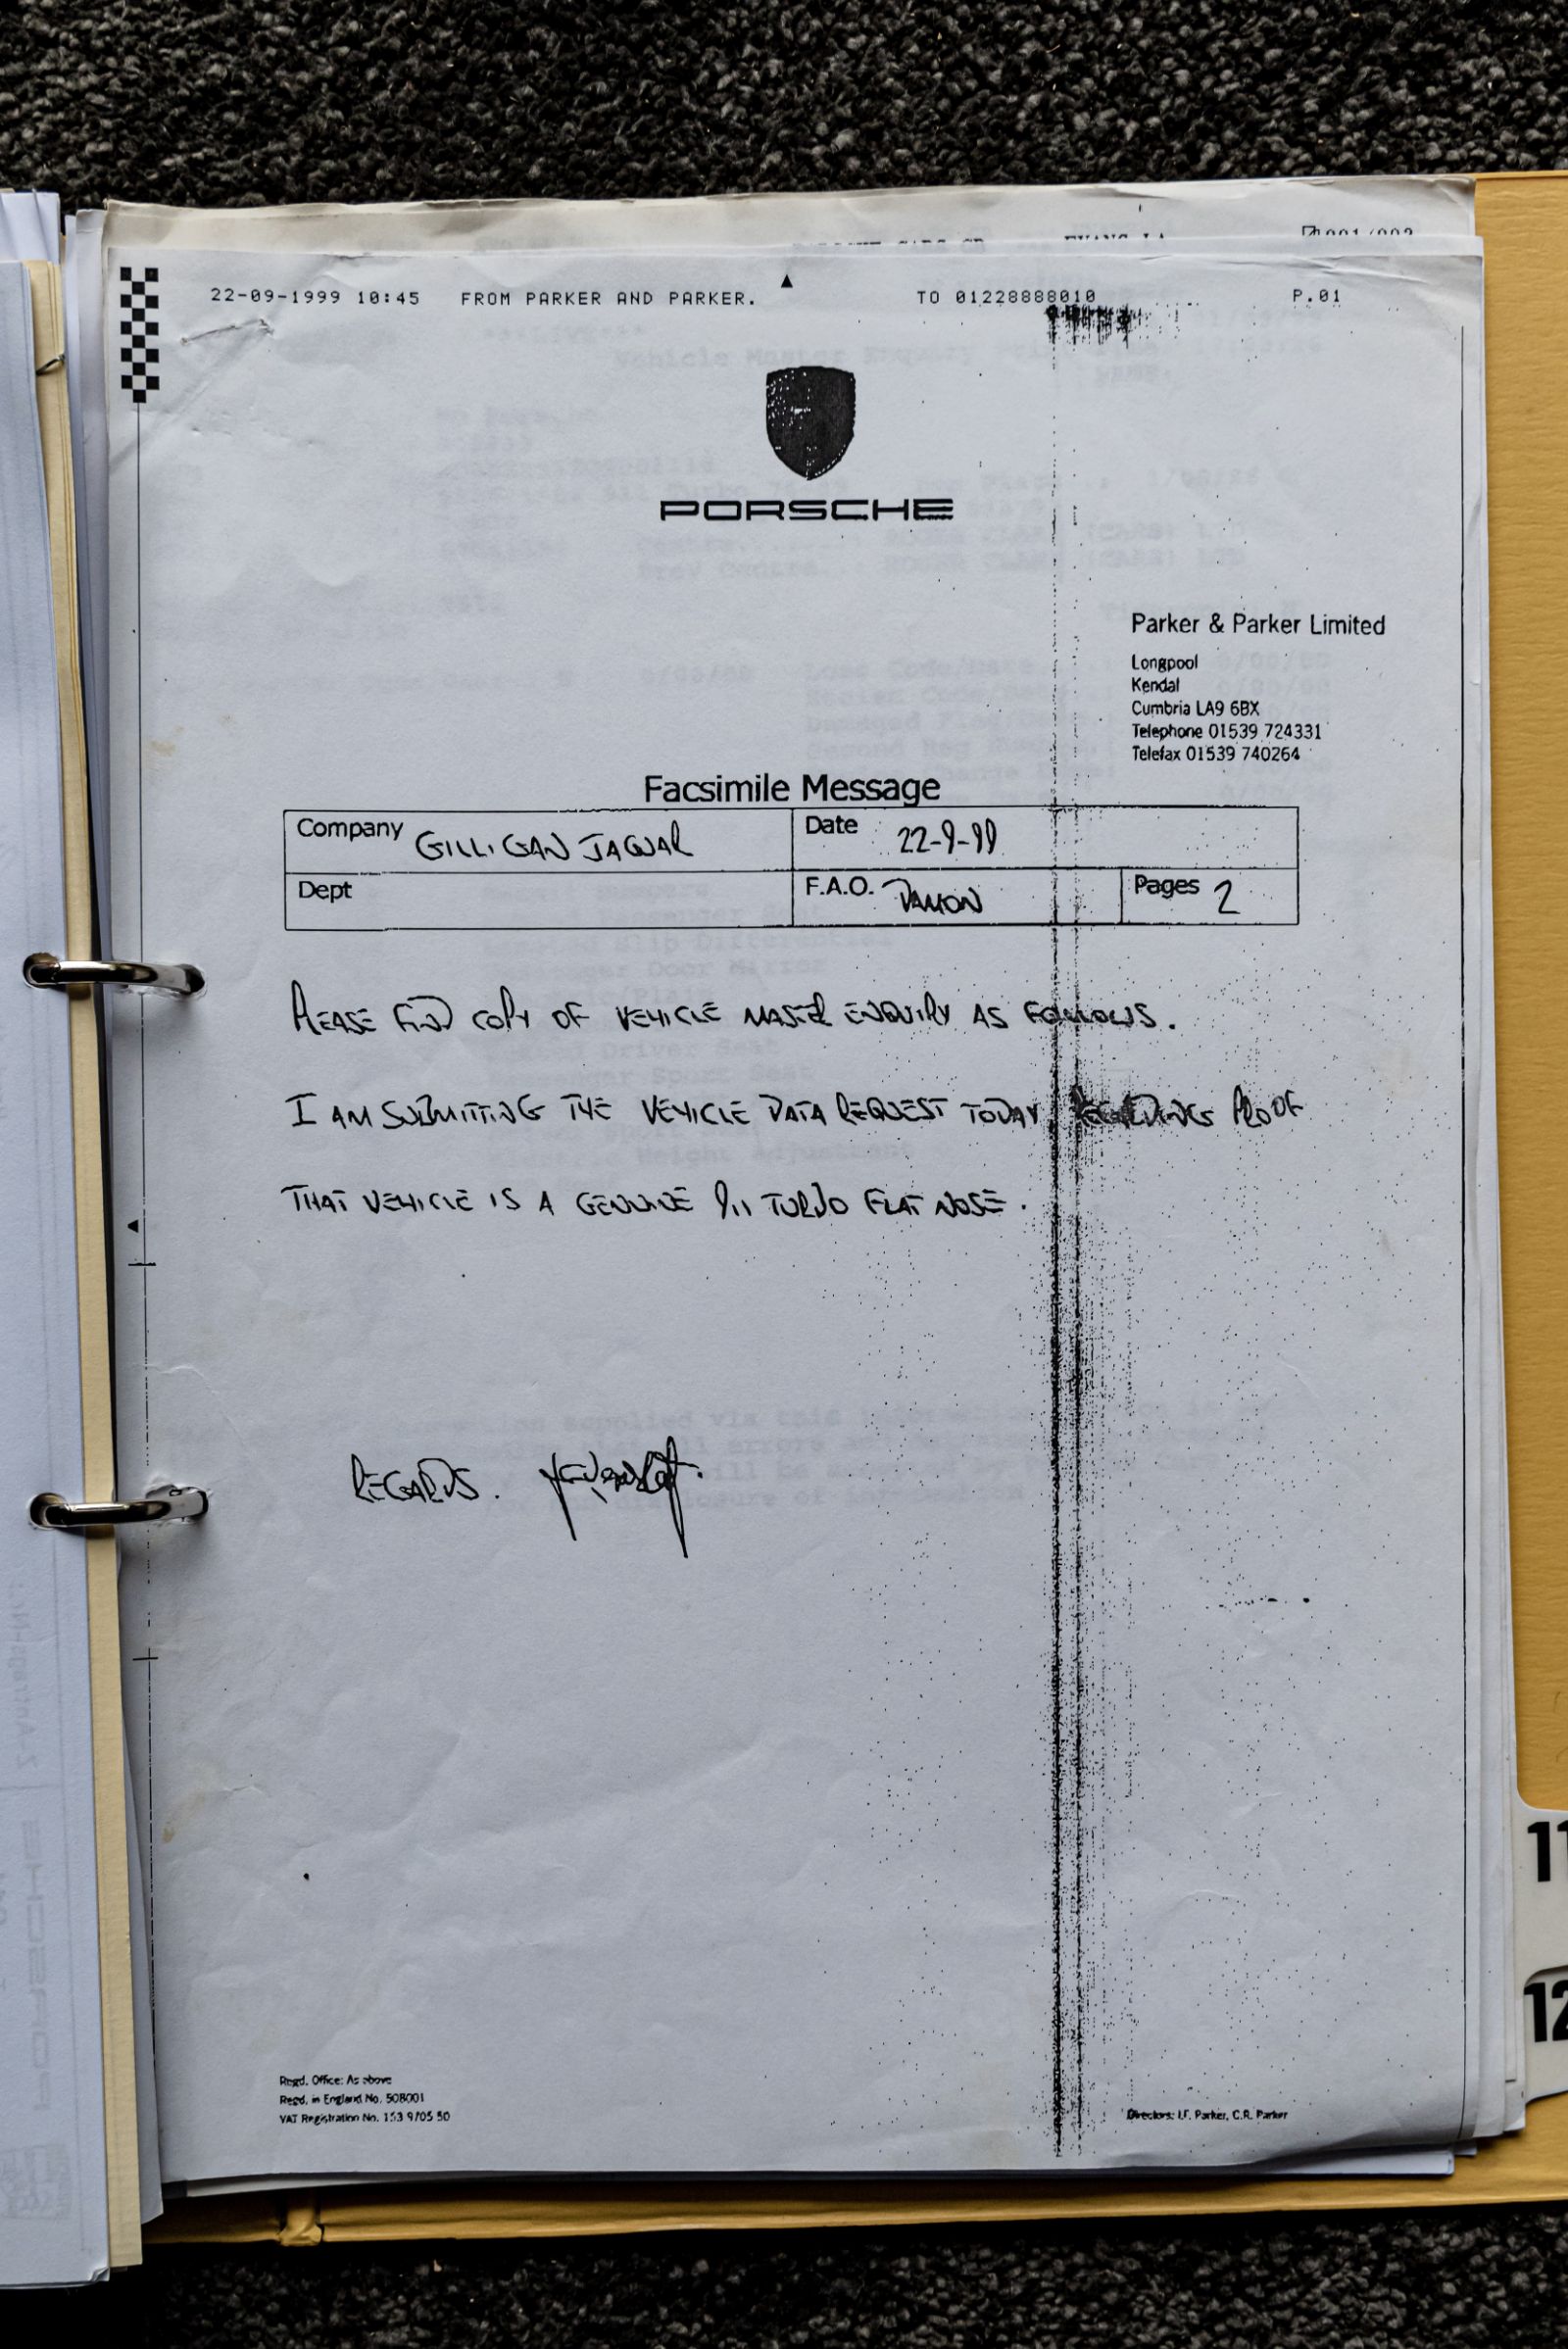 22-09-1999 10:45 FROM PARKER AND PARKER. TO 01228888010 P.01
PORSCHE
Parker & Parker Limited
Longpool
Kendal
Cumbria LA9 6BX
Telephone 01539 724331
Telefax 01539 740264
Facsimile Message
Company GILLIGAN JAGUAR Date 22-9-99
Dept F.A.O. DAMON Pages 2
PLEASE FIND COPY OF VEHICLE MASTER ENQUIRY AS FOLLOWS.
I AM SUBMITTING THE VEHICLE DATA REQUEST TODAY REGARDING PROOF
THAT VEHICLE IS A GENUINE 911 TURBO FLAT NOSE.
REGARDS.
Regd. Office: As above
Regd. in England No. 508001
VAT Registration No. 153 9705 50
Directors: I.F. Parker, C.R. Parker
11
12